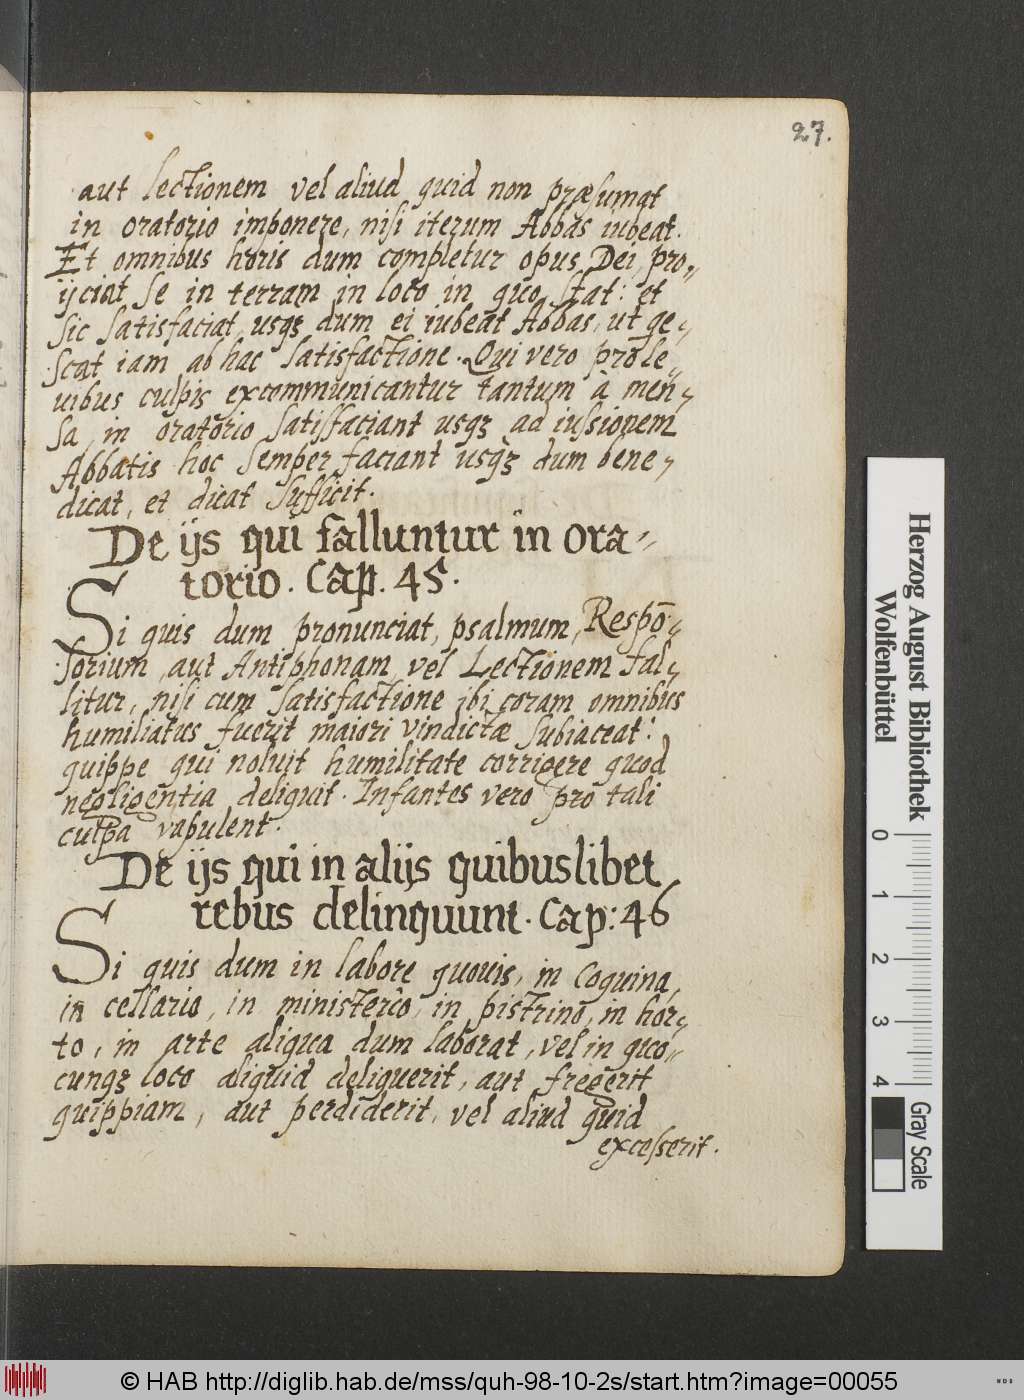 27.
aut lectionem vel aliud quid non præsumat
in oratorio imponere, nisi iterum Abbas iubeat.
Et omnibus horis dum completur opus Dei, pro„
ijciat se in terram in loco in quo stat: et
sic satisfaciat, usqꝫ dum ei iubeat Abbas, ut qe„
scat iam ab hac satisfactione. Qui vero pro le„
uibus culpis excommunicantur tantum à men„
sa, in oratorio satisfaciant usqꝫ ad iussionem
Abbatis hoc semper faciant usqꝫ dum bene„
dicat, et dicat sufficit.
De ijs qui falluntur in ora„
torio. Cap. 45.
Si quis dum pronunciat, psalmum, Respõ„
sorium, aut Antiphonam, vel Lectionem fal„
litur, nisi cum satisfactione ibi coram omnibus
humiliatus fuerit maiori vindictæ subiaceat:
quippe qui noluit humilitate corrigere quod
negligentia deliquit. Infantes vero pro tali
culpa vapulent.
De ijs qui in alijs quibuslibet
rebus delinquunt. Cap: 46
Si quis dum in labore quouis, in Coquina,
in cellario, in ministerio, in pistrino, in hor„
to, in arte aliqua dum laborat, vel in quo„
cunqꝫ loco aliquid deliquerit, aut fregerit
quippiam, aut perdiderit, vel aliud quid
excesserit.
Herzog August Bibliothek
Wolfenbüttel
0 1 2 3 4
Gray Scale
© HAB http://diglib.hab.de/mss/quh-98-10-2s/start.htm?image=00055